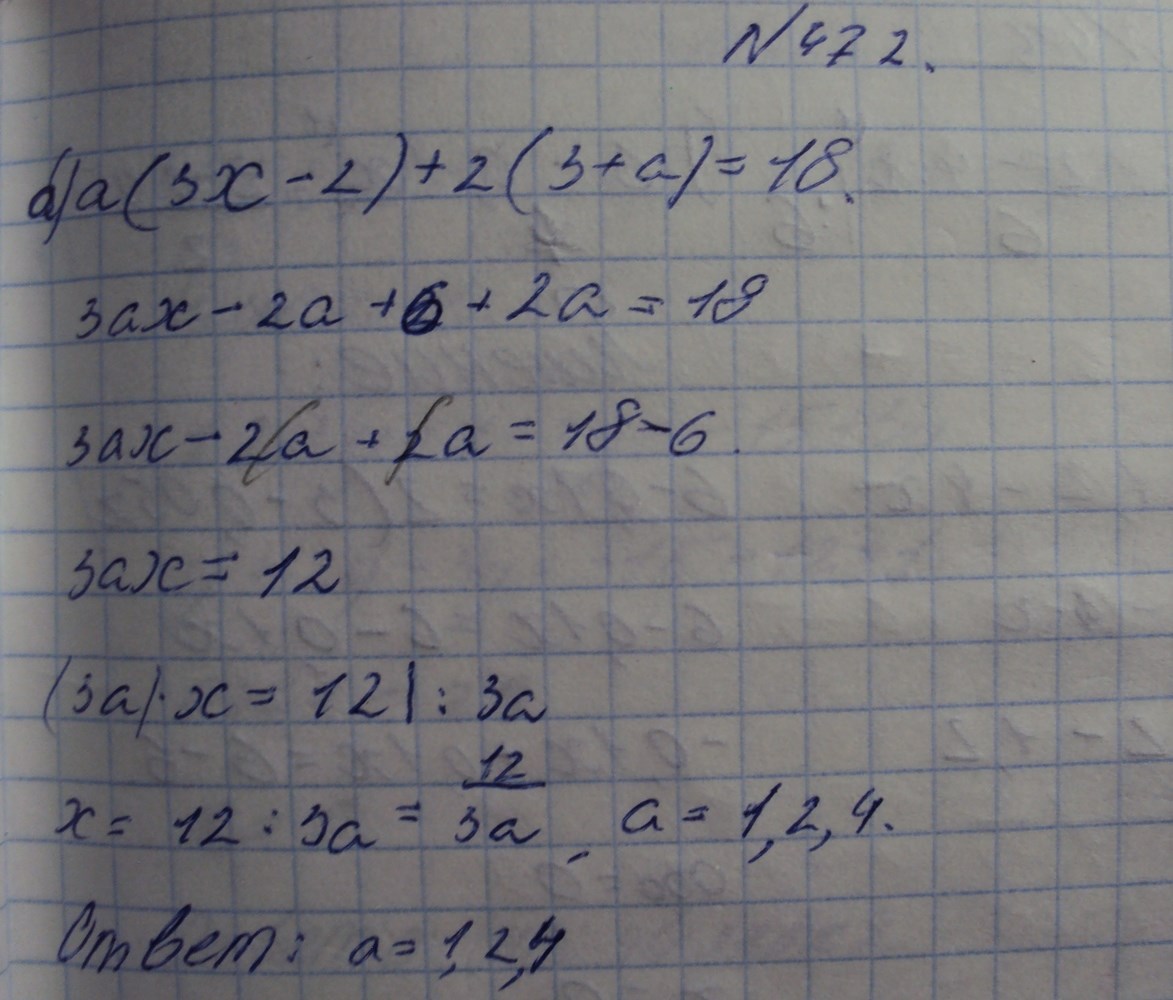 №472.
б) a(3x-2)+2(3+a)=18.
3ax-2a+6+2a=18
3ax-2a+2a=18-6.
3ax=12
(3a)·x=12|:3a
x=12:3a=12/3a, a=1,2,4.
Ответ: a=1,2,4